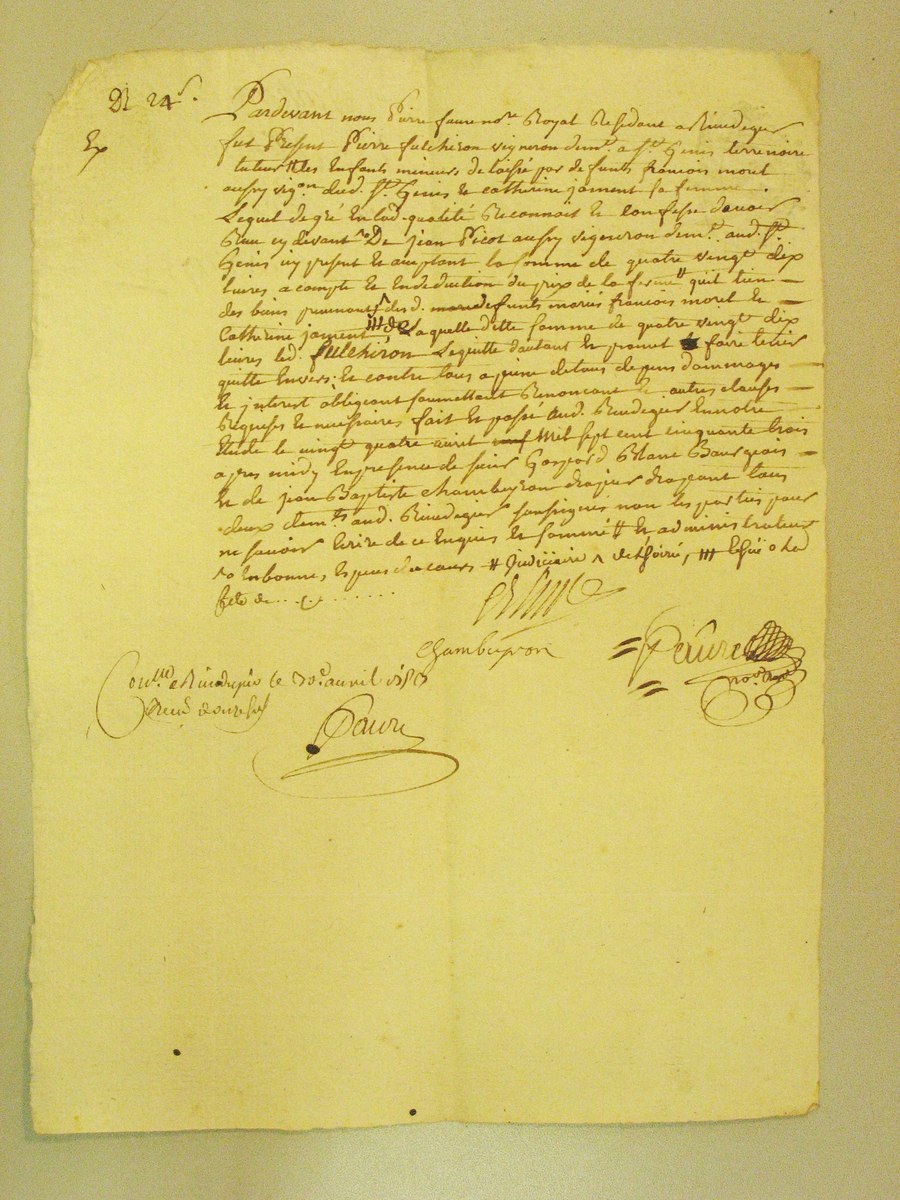 Du 24e.
Ex
Pardevant nous Pierre faure nore Royal Residant a Rivedegier
fut Present Pierre fulchiron vigneron demt a St Genis terrenoire
tuteur # des Enfants mineurs delaissé par defunts francois morel
aussy vigon dud. St Genis Et catherine jament sa femme
Lequel de gré En lad. qualité Reconnoit Et Confesse d'avoir
Reçu cy devant De jean Picot aussy vigneron demt aud. St
Genis icy present Et acceptant la somme de quatre vingt dix
livres a compte Et En deduction du prix de la ferme quil tien
des biens provenants ^ desd. defunts mariés francois morel Et
Catherine jament ### de Laquelle ditte somme de quatre vingt dix
livres led. fulchiron Le quitte d'autant Et promet faire tenir
quitte Envers Et contre tous a peine de tous depens dommages
Et jnterest obligeant soumettant Renoncant Et autres clauses
Requises Et necessaires fait Et passé aud. Rivedegier En notre
Etude le vingt quatre avril Mil sept cent cinquante trois
apres midy En presence de sieur Gaspard Blanc Bourgeois
Et de jean Baptiste Chambeyron drapier drapant tous
deux demts aud. Rivedegier soussignés non les parties pour
ne savoir Ecrire de ce Enquis Et sommé # Et administrateur
En bonnes, Especes de cours # judiciaire ^ ###
Blanc
Chambeyron
Faure
nore Royal
Conllé a Rivedegier le 30e avril 1753
Recu douze sols
Faure